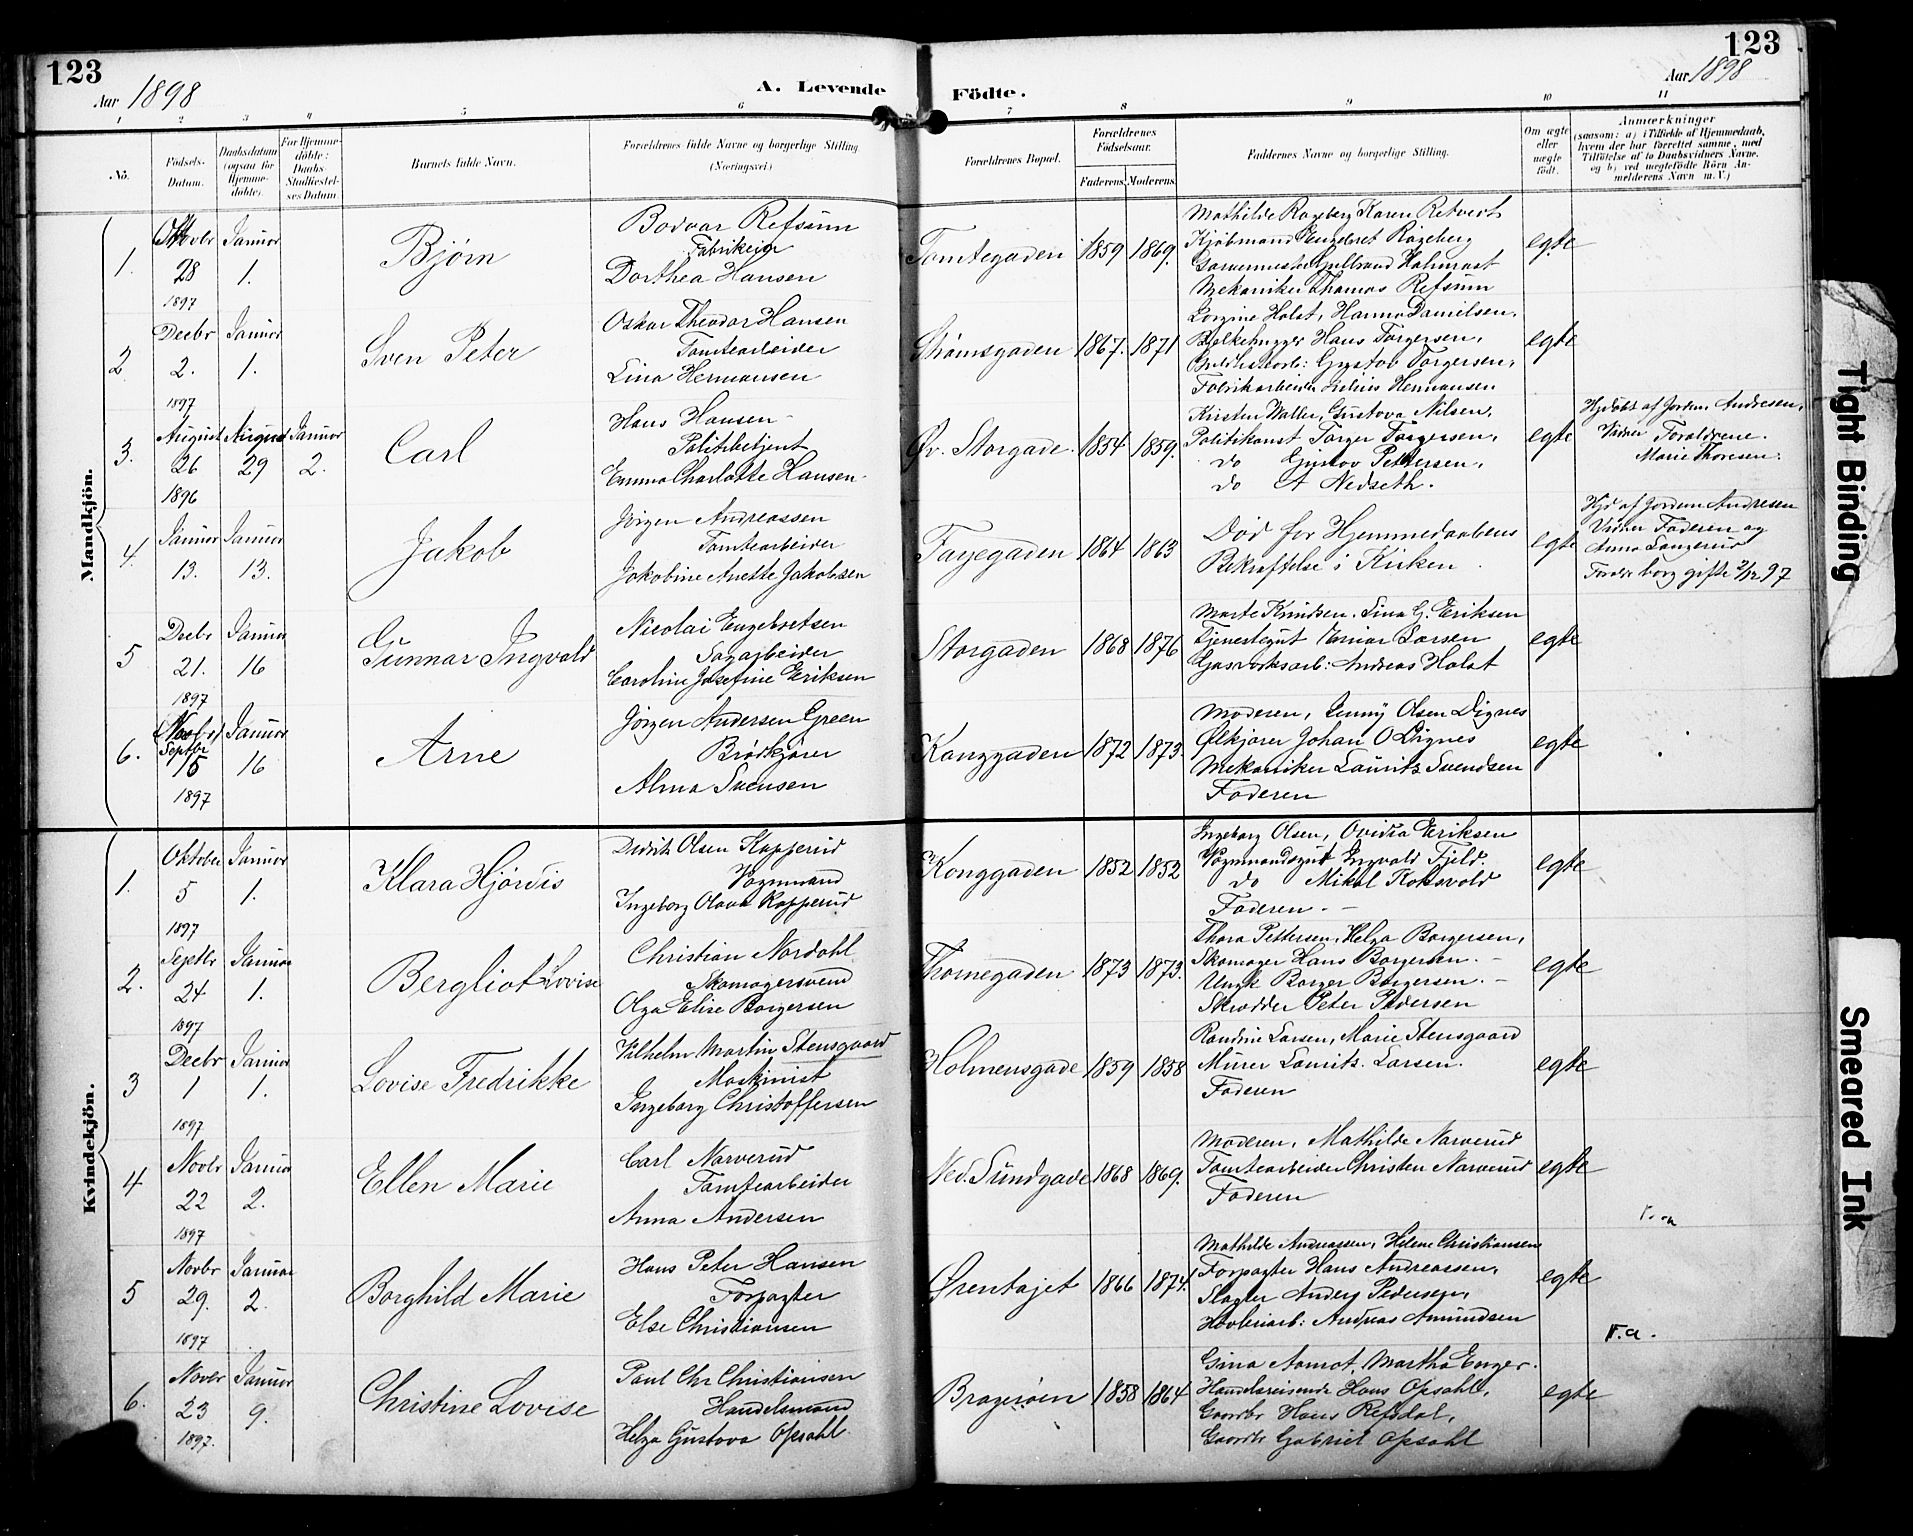 123
Aar 1898
A. Levende
Födte.
123
Aar 1898
1 2 3 4 5 6 7 8 9 10 11
No.
Födsels-
Datum.
Daabsdatum
(ogsaa for
Hjemme-
döbte).
For Hjemme-
döbte:
Daabs-
Stadfæstel-
ses Datum.
Barnets fulde Navn.
Forældrenes fulde Navne og borgerlige Stilling
(Næringsvei.)
Forældrenes Bopæl.
Forældrenes
Födselsaar.
Faderens. Moderens.
Faddernes Navne og borgerlige Stilling.
Om ægte
eller
uægte
födt.
Anmærkninger
(saasom: a) i Tilfælde af Hjemmedaab,
hvem der har forrettet samme, med
Tilföielse af to Daabsvidners Navne.
og b) ved uægtefödte Börn An-
melderens Navn m. V.)
Mandkjön.
1. Oktobr 28 1897
Januar 1.
Bjørn
Bodvar Refsum
Fabrikeier
Dorthea Hansen
Tomtegaden 1859 1869.
Mathilde Rogeberg Karen Retvert
Kjøbmand Engebret Rogeberg
Garvermester Gulbrand
Mekaniker Thomas Refsum
egte
2. Decbr 2. 1897
Januar 1.
Sven Peter
Oskar Theodor Hansen
Tomtearbeider
Lina Hermansen
Strømsgaden 1867. 1871
Holst, Hanna Danielsen.
Hans Torgersen,
Gustav Torgersen,
Fabrikarbeider Julius Hermansen
egte
3. August 26 1896
August 29
Januar 2.
Carl
Hans Hansen
Politibetjent
Emma Charlotte Hansen
Øv. Storgade. 1854 1859.
Kirsten Walter, Gustava Nilsen,
Politikonst Torger Torgersen,
do Gustav Pettersen,
do A Nedseth.
egte
Hjdøbt af Jordm. Andresen,
Vidner Forældrene.
Marie Thoresen.
4. Januar 13.
Januar 13.
Jakob
Jørgen Andreassen
Tomtearbeider
Jakobine Anette Jakobsen
Fayegaden 1864 1863
Død før Hjemmedaabens
Bekræftelse i Kirken.
egte
Hjd af Jordem Andresen
Vidner Faderen og
Anna Langerud
Foreldr borg gifte 2/12 97
5 Decbr 21. 1897
Januar 16
Gunnar Ingvald
Nicolai Engebretsen
Sagarbeider
Caroline Josefine Eriksen
Storgaden 1868 1876
Marte Knudsen. Lina G. Eriksen
Tjenestegut Einar Larsen
Gasverksarb: Andreas Holst
egte
6. (Novbr) Septbr 15 1897
Januar 16
Arne
Jørgen Andersen Green
Brødkjører
Alma Svensen
Konggaden 1872 1873.
Moderen, Jenny Olsen Dignes
Ølkjører Johan O Dignes
Mekaniker Laurits Svendsen
Faderen
egte
Kvindekjön.
1. Oktober 5 1897
Januar 1.
Klara Hjørdis
Didrik Olsen Kopperud
Vognmand
Ingeborg Olava Kopperud
Konggaden 1852 1852
Ingeborg Olsen, Ovidia Eriksen
Vognmandsgut Ingvald Fjeld.
do Mikal Koksvold
Faderen.
egte
2. Septbr 24 1897
Januar 1.
Bergliot Lovise
Christian Nordahl
Skomagersvend
Olga Elise Borgersen
Thornegaden 1873 1873.
Thora Pettersen, Helga Borgersen,
Skomager Hans Borgersen.
Ungk Borger Borgersen.
Skrædder Peter Pedersen
egte
3 Decbr 1 1897
Januar 1.
Lovise Fredrikke
Vilhelm Martin Stensgaard
Maskinist
Ingeborg Christoffersen
Holmensgade 1859 1858
Randine Larsen, Marie Stensgaard
Murer Laurits. Larsen.
Faderen
egte
4 Novbr 22 1897
Januar 2.
Ellen Marie
Carl Narverud
Tomtearbeider
Anna Andersen
Ned. Sundgade 1868 1869.
Moderen, Mathilde Narverud
Tomtearbeider Christen Narverud
Faderen
egte
5 Novbr 29. 1897
Januar 2.
Borghild Marie
Hans Peter Hansen
Forpagter
Else Christiansen
Ørentajet 1866 1874.
Mathilde Andreassen, Helene Christiansen
Forpagter Hans Andreassen,
Slagter Anders Pedersen,
Høvleriarb: Andreas Amundsen
egte
F. a.
6. Novbr 23 1897.
Januar 9.
Christine Lovise
Paul Chr Christiansen
Handelsmand
Helga Gustava Opsahl
Bragerøen 1858 1864
Gina Aamot, Martha Enger.
Handelsreisende Hans Opsahl,
Gaardbr Hans Refsdal,
Gaardbr Gabriel Opsahl
egte
F. a.
Tight Binding
Smeared Ink